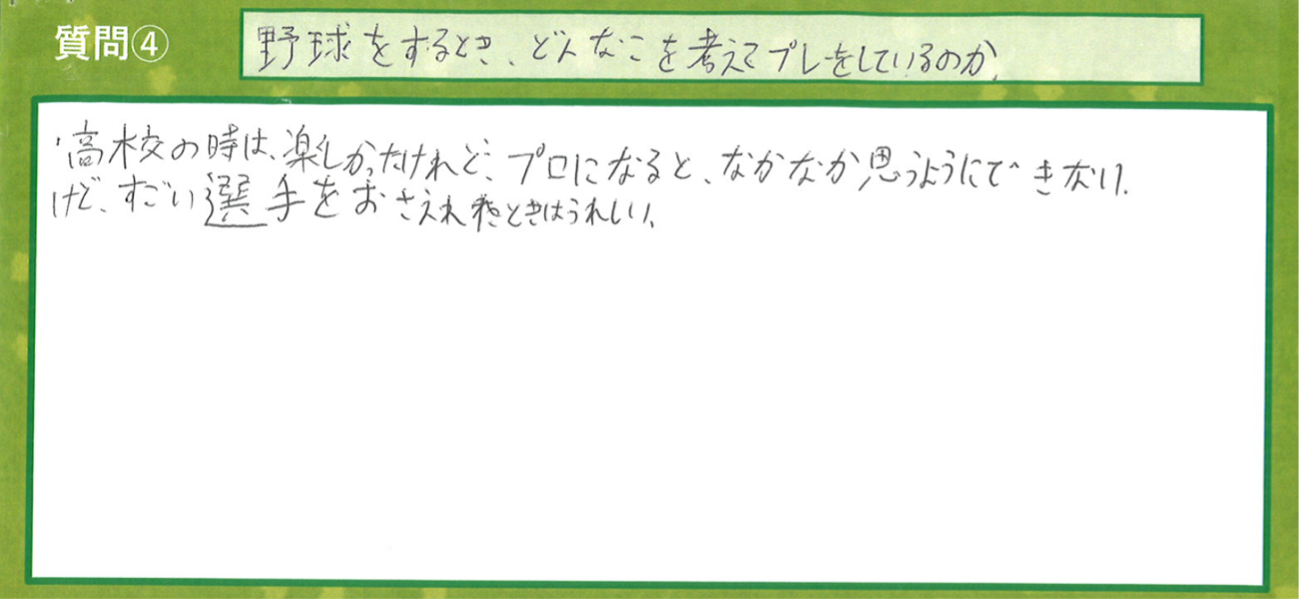 質問④
野球をするとき、どんなこを考えてプレーをしているのか、
・高校の時は、楽しかったけれど、プロになると、なかなか思うようにできない、
けど、すごい選手をおさえれたときはうれしい、